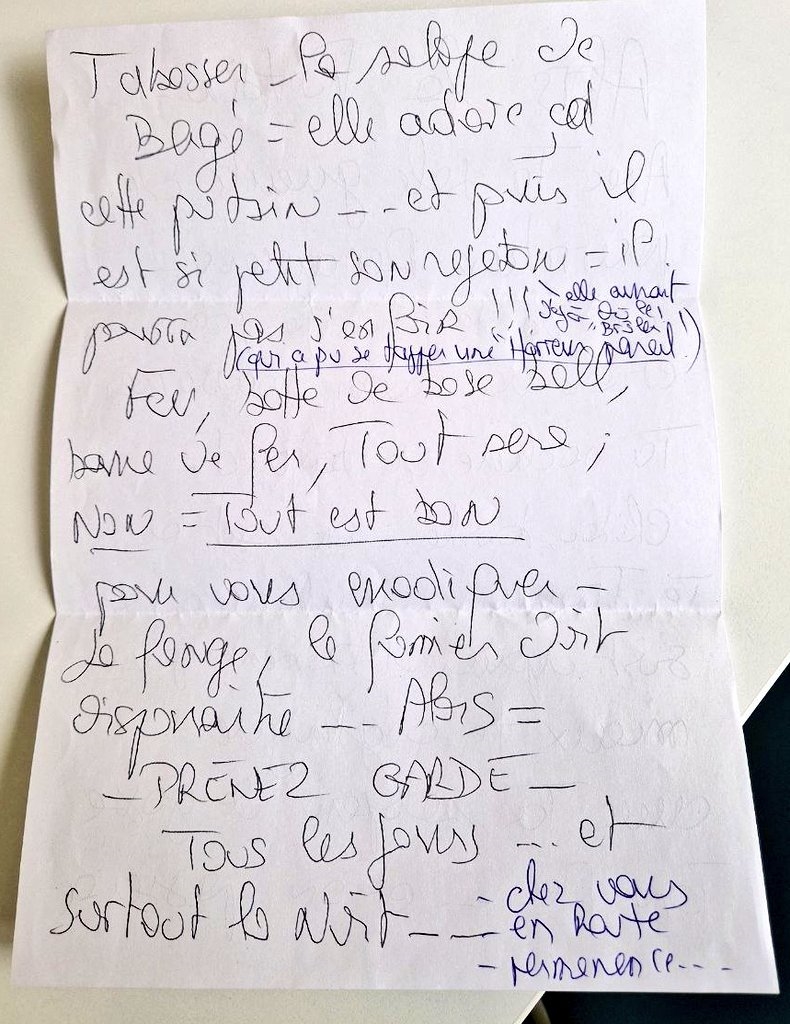 Tabasser la salope de
Bagé = elle adore ça
cette putain --- et puis il
est si petit son rejeton = il
pourra pas s'en
!!! elle aurait
déjà dû être
brûlée !
(qui a pu se taper une Horreur pareil !)
Feu, batte de base ball,
barre de fer, Tout sera ;
Non = Tout est bon
pour vous éradiquer -
La fange, le fumier doit
disparaître --- Alors =
- PRENEZ GARDE -
Tous les jours --- et
surtout la Nuit - - -
- chez vous
- en Route
- permenence ---